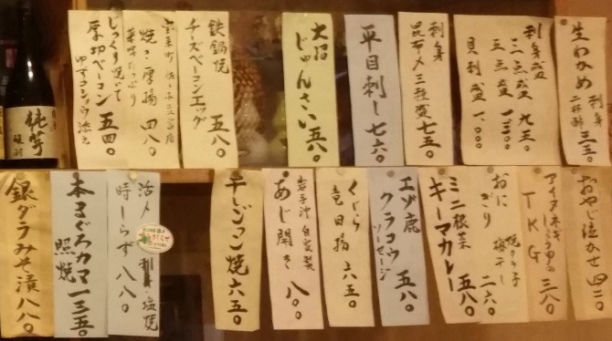 生わかめ 刺身 二杯酢 三三〇
刺身盛
三点盛 九五〇
五点盛 一三〇〇
貝刺盛 一、〇〇〇
刺身
昆布〆三種盛 七五〇
平目刺し 七六〇
大沼
じゅんさい 五八〇
鉄鍋焼
チーズベーコンエッグ 五八〇
焼き厚揚 四八〇
じっくり焼いて
厚切ベーコン 五四〇
おやじ泣かせ 四二〇
TKG 三八〇
おにぎり 二六〇
ミニ根菜
キーマカレー 五八〇
エゾ鹿
クラコウ 五八〇
ソーセージ
くじら
竜田揚 六五〇
岩手沖 自家製
あじ開き 八〇〇
チーヂョン焼 六五〇
活〆 刺身・塩焼
時しらず 八八〇
本まぐろカマ 一三五〇
照焼
銀ダラみそ漬 八八〇